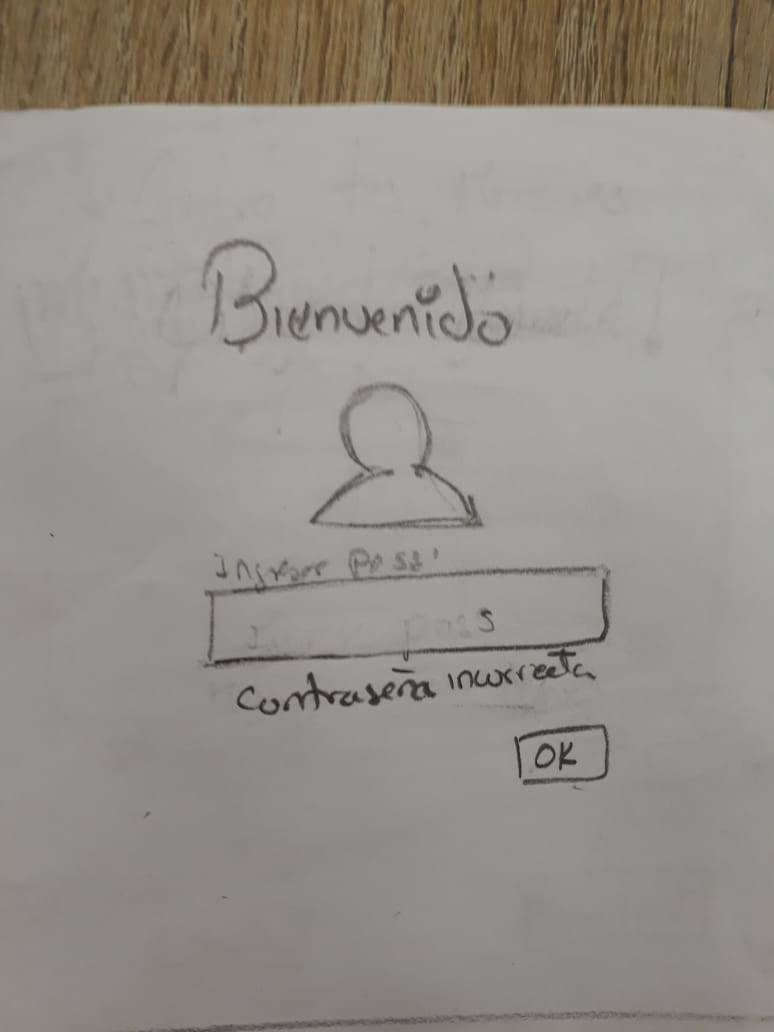 Bienvenido
Ingresar pass:
pass
Contraseña incorrecta
OK